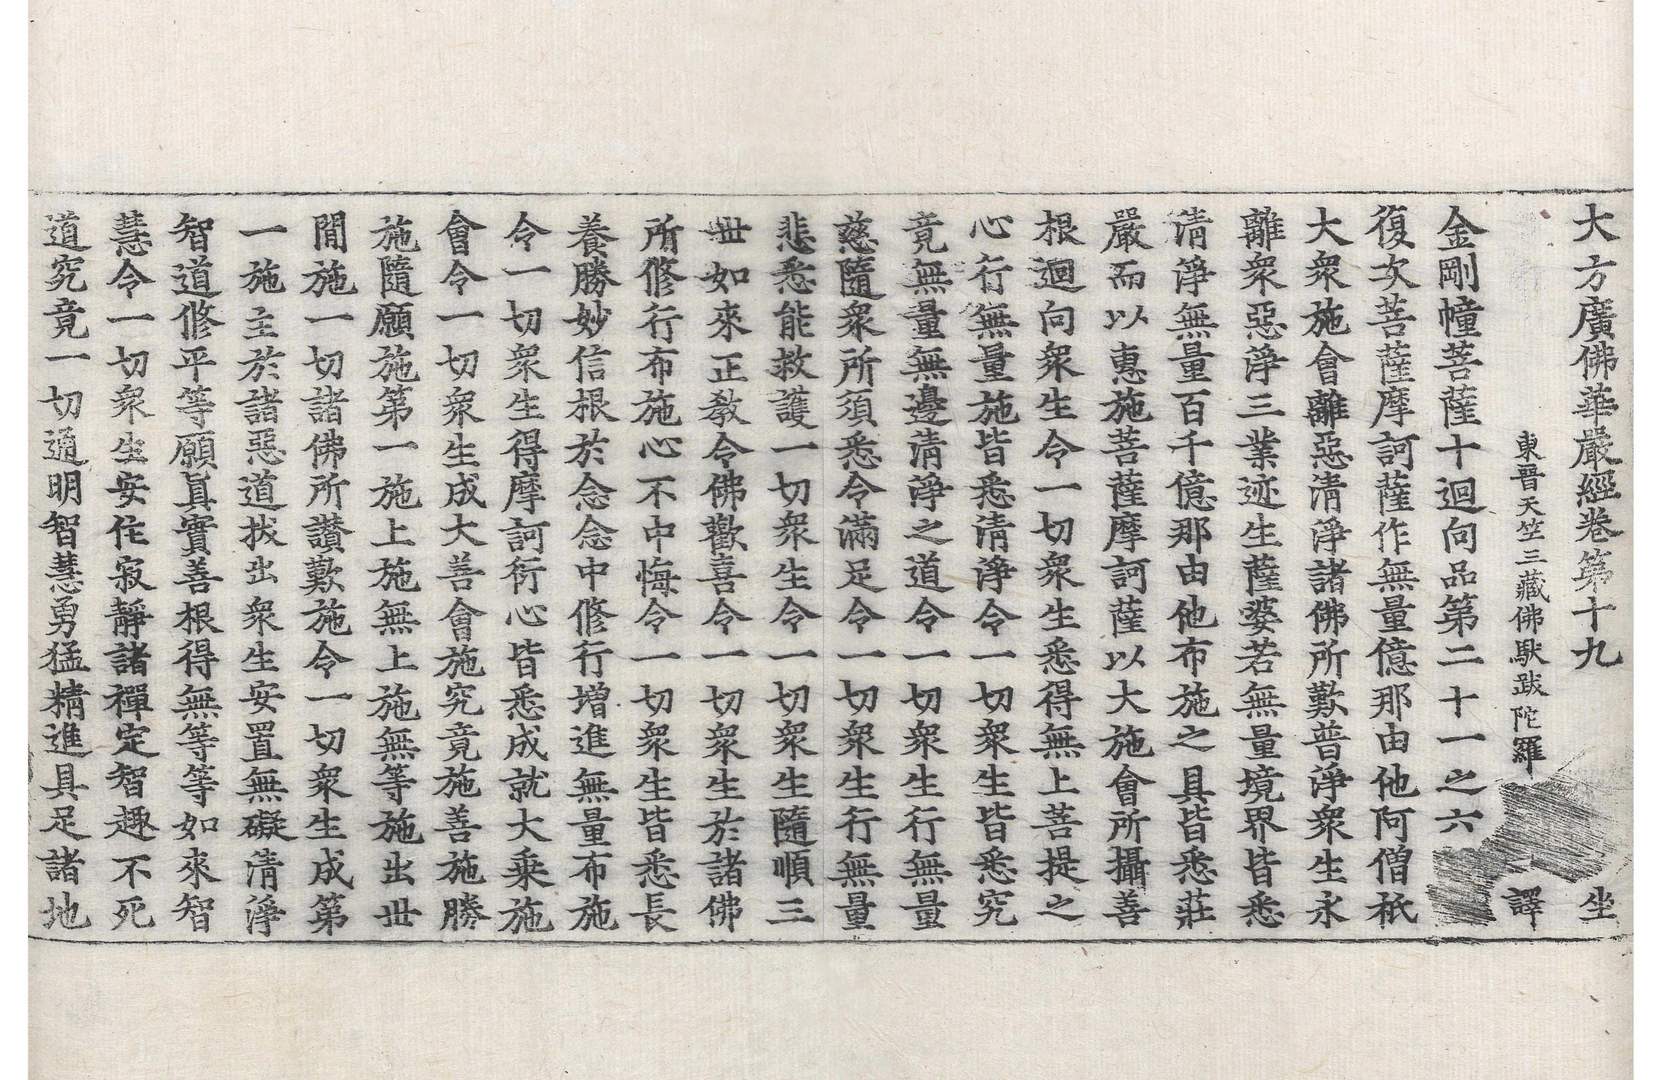 大方廣佛華嚴經卷第十九 坐
東晉天竺三藏佛馱跋陀羅 譯
金剛幢菩薩十迴向品第二十一之六
復次菩薩摩訶薩作無量億那由他阿僧祇
大衆施會離惡清淨諸佛所歎普淨衆生永
離衆惡淨三業迹生薩婆若無量境界皆悉
清淨無量百千億那由他布施之具皆悉莊
嚴而以惠施菩薩摩訶薩以大施會所攝善
根迴向衆生令一切衆生悉得無上菩提之
心行無量施皆悉清淨令一切衆生皆悉究
竟無量無邊清淨之道令一切衆生行無量
慈隨衆所須悉令滿足令一切衆生行無量
悲悉能救護一切衆生令一切衆生隨順三
世如來正教令佛歡喜令一切衆生於諸佛
所修行布施心不中悔令一切衆生皆悉長
養勝妙信根於念念中修行增進無量布施
令一切衆生得摩訶衍心皆悉成就大乘施
會令一切衆生成大善會施究竟施善施勝
施隨願施第一施上施無上施無等施出世
間施一切諸佛所讚歎施令一切衆生成第
一施主於諸惡道拔出衆生安置無礙清淨
智道修平等願眞實善根得無等等如來智
慧令一切衆生安住寂靜諸禪定智趣不死
道究竟一切通明智慧勇猛精進具足諸地